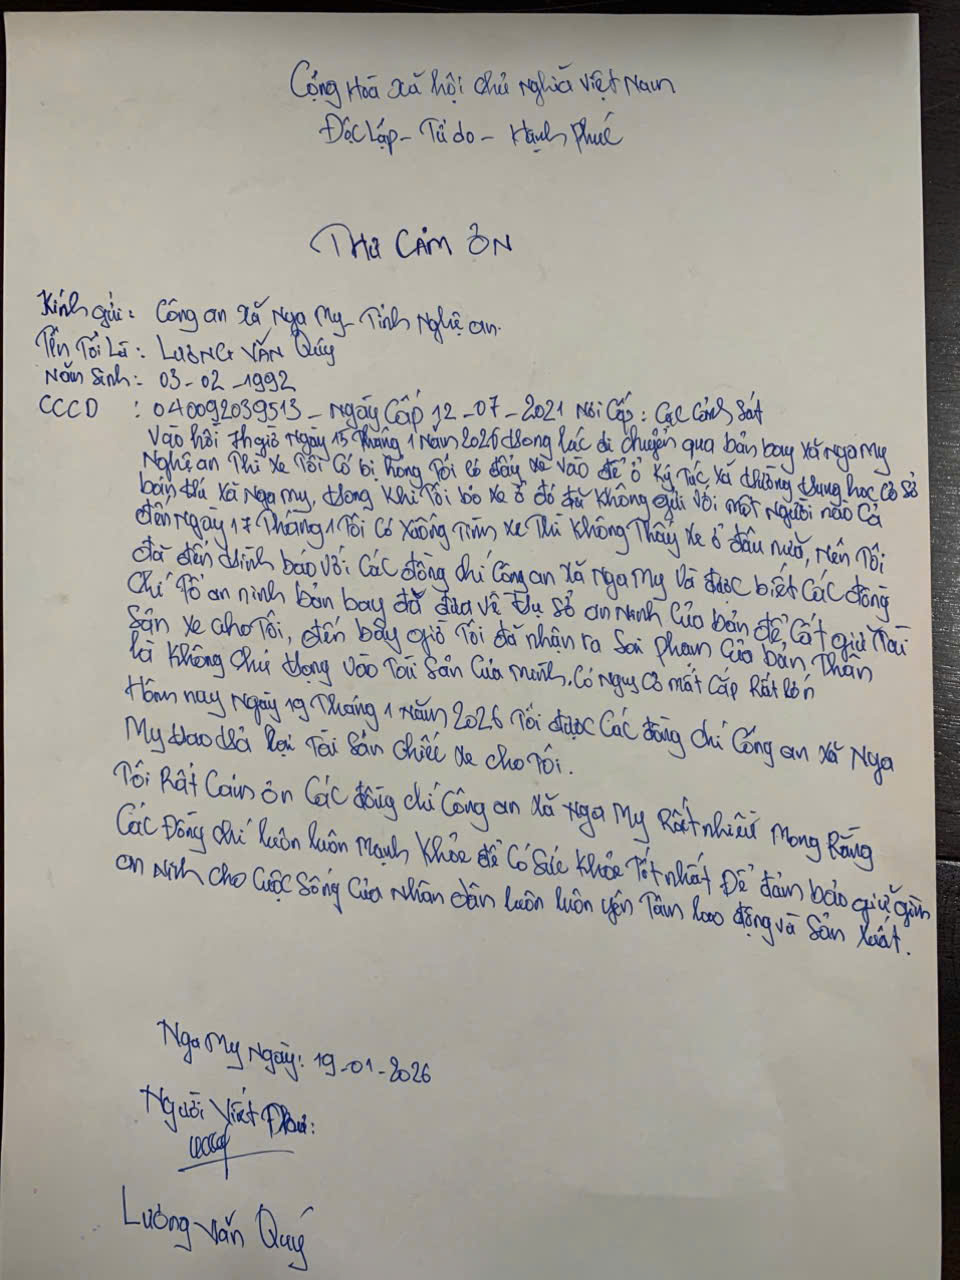 Cộng Hoà xã hội chủ nghĩa Việt Nam
Độc lập - Tự do - Hạnh phúc
THƯ CẢM ƠN
Kính gửi: Công an xã Nga My - Tỉnh Nghệ an.
Tên Tôi Là: LƯƠNG VĂN Quý
Năm Sinh: 03-02-1992
CCCD : 040092039513 - Ngày Cấp 12-07-2021 Nơi Cấp: Cục Cảnh Sát
Vào hồi 7h giờ Ngày 15 Tháng 1 Năm 2026 trong lúc di chuyển qua bản bay xã Nga My
Nghệ an Thì xe Tôi Có bị hỏng Tôi có đẩy xe vào để ở Ký Túc xá trường trung học Cơ Sở
bán trú xã Nga My, trong khi Tôi bỏ xe ở đó đã không gửi với một Người nào Cả
đến Ngày 17 Tháng 1 Tôi Có xuống Tìm xe Thì không Thấy xe ở đâu nữa, Nên Tôi
đã đến trình báo với Các đồng chí Công an xã Nga My và được biết Các đồng
Chí Tổ an ninh bản bay đã đưa về Trụ Sở an ninh Của bản để, Cất giữ Tài
Sản xe cho Tôi, đến bây giờ Tôi đã nhận ra Sai phạm Của bản, Thân
là không chú trọng vào Tài Sản Của mình. Có Nguy Cơ mất Cắp Rất lớn
Hôm nay Ngày 19 Tháng 1 Năm 2026 Tôi được Các đồng chí Công an xã Nga
My trao trả lại Tài Sản chiếc xe cho Tôi.
Tôi Rất Cảm ơn Các đồng chí Công an xã Nga My Rất nhiều Mong Rằng
Các Đồng chí luôn luôn Mạnh khỏe để Có Sức khỏe Tốt nhất Để đảm bảo giữ gìn
an Ninh cho Cuộc Sống Của Nhân dân luôn luôn yên Tâm lao động và Sản xuất.
Nga My Ngày: 19-01-2026
Người Viết Thư:
Lương Văn Quý